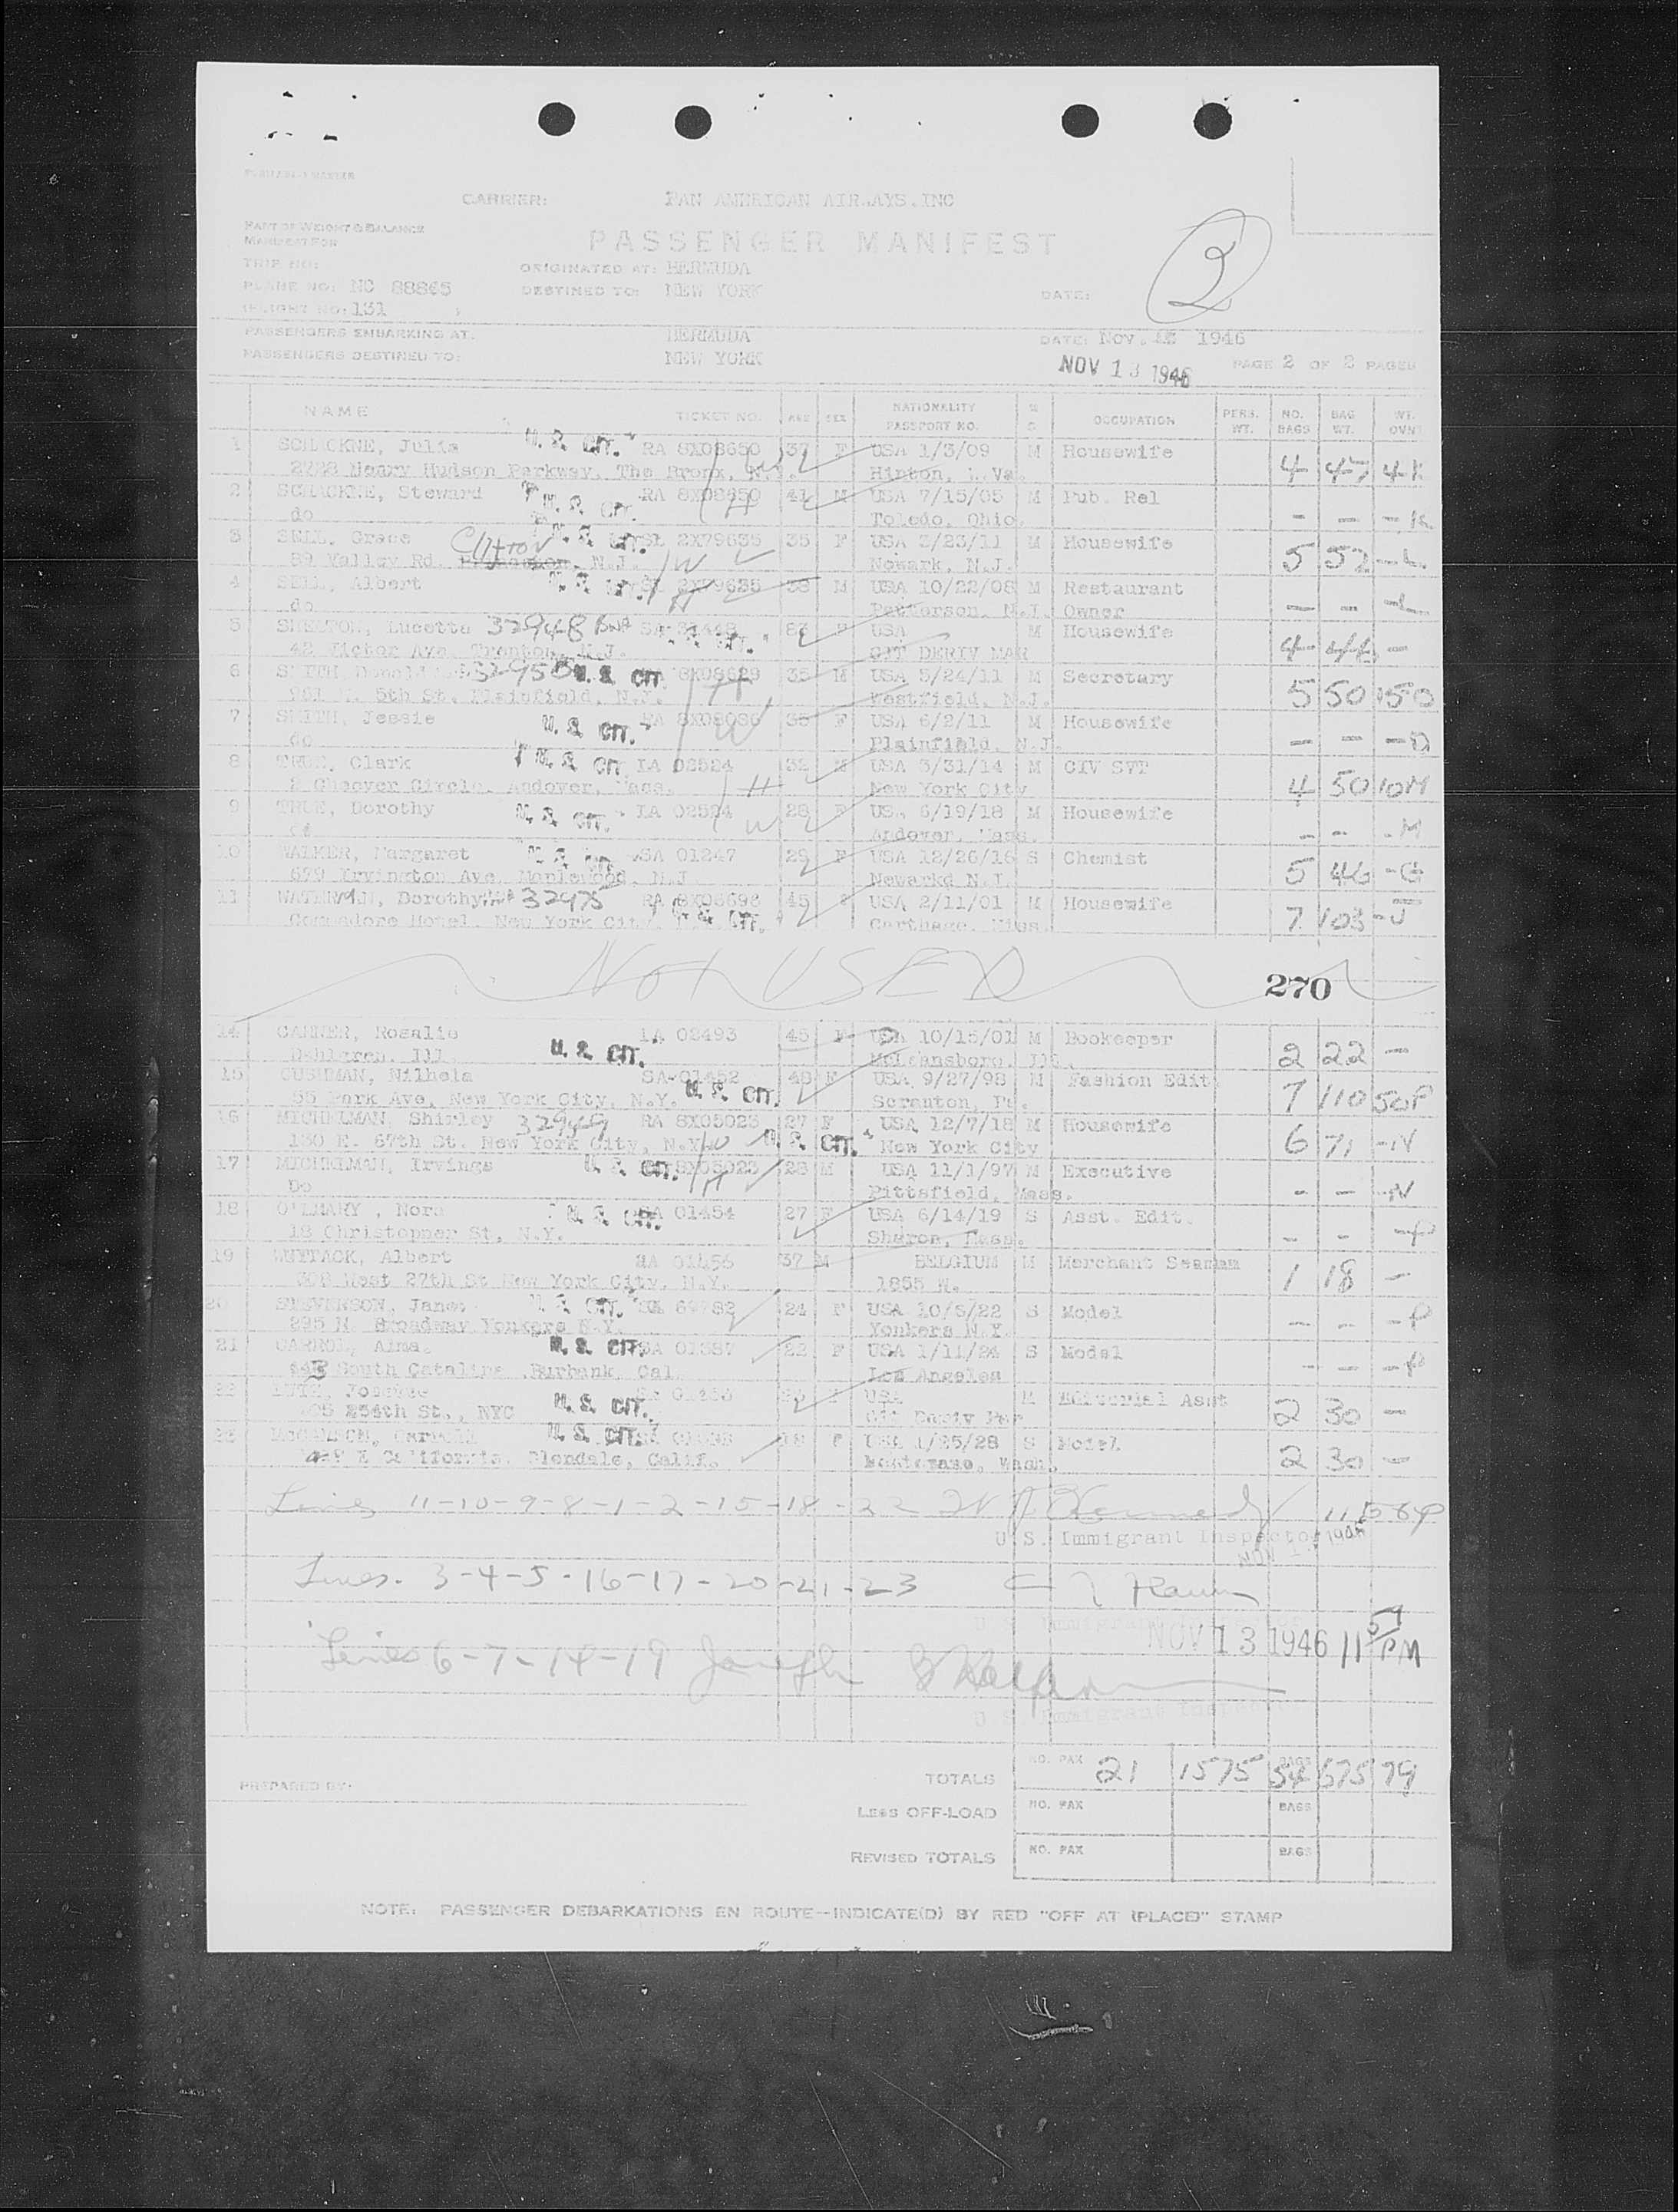 CARRIER: PAN AMERICAN AIRWAYS, INC
PART OF WEIGHT & BALANCE
MANIFEST FOR
PASSENGER MANIFEST
3
TRIP NO:
ORIGINATED AT: BERMUDA
PLANE NO: NC 88865
DESTINED TO: NEW YORK
DATE:
FLIGHT NO: 131
PASSENGERS EMBARKING AT: BERMUDA
DATE: Nov. 1946
PASSENGERS DESTINED TO: NEW YORK
NOV 13 1946
PAGE 2 OF 2 PAGES
NAME TICKET NO. AGE SEX NATIONALITY PASSPORT NO. OCCUPATION PERS. WT. NO. BAGS BAG WT. WT. OVN
1 SCHACKNE, Julia U.S. CIT. RA 8X08650 37 F USA 1/3/09 M Housewife
2728 Henry Hudson Parkway, The Bronx, N.Y. W Hinton, W. Va. 4 47
2 SCHACKNE, Steward U.S. CIT. RA 8X08650 41 M USA 7/15/05 M Pub. Rel
do H Toledo, Ohio. - - -
3 SELL, Grace Clifton U.S. CIT. 2X79635 35 F USA 3/23/11 M Housewife
89 Valley Rd. N.J. W Newark, N.J. 5 52 -L
4 SELL, Albert U.S. CIT. 2X79635 38 M USA 10/22/08 M Restaurant
do H Patterson, N.J. Owner - - -L
5 SHELTON, Lucetta 32948 USA M Housewife
42 Victor Ave. Trenton, N.J. U.S. CIT. CIT DERIV MAR 4 44 -
6 SMITH, Donald U.S. CIT. 8X08629 35 M USA 5/24/11 M Secretary
961 W. 5th St. Plainfield, N.J. H Westfield, N.J. 5 50
7 SMITH, Jessie U.S. CIT. 35 F USA 6/2/11 M Housewife
do W Plainfield, N.J. - - -
8 TRUE, Clark U.S. CIT IA 02524 32 M USA 3/31/14 M CIV SVT
2 Cheever Circle, Andover, Mass. H New York City 4 50 10M
9 TRUE, Dorothy U.S. CIT. IA 02524 28 F US. 6/19/18 M Housewife
W Andover, Mass. - - -M
10 WALKER, Margaret U.S. CIT. SA 01247 29 F USA 12/26/16 S Chemist
679 Irvington Ave. Maplewood, N.J Newarkd N.J. 5 46 -G
11 WATERMAN, Dorothy 32975 RA 8X08698 45 USA 2/11/01 M Housewife
Commadore Hotel, New York City U.S. CIT. Carthage, Miss. 7 103 -J
NOT USED
270
14 CARNER, Rosalie IA 02493 45 F USA 10/15/01 M Bookeeper
Dahlgren, Ill. U.S. CIT. McLeansboro, Ill. 2 22 -
15 CUSHMAN, Wilhela SA-01452 48 F USA 9/27/98 M Fashion Edit
55 Park Ave, New York City, N.Y. U.S. CIT. Scranton, Pa. 7 110 50P
16 MICHELMAN, Shirley 32949 RA 8X05023 27 F USA 12/7/18 M Housewife
130 E. 67th St. New York City, N.Y. W U.S. CIT. New York City 6 71 -N
17 MICHELMAN, Irvings U.S. CIT. 8X05023 28 M USA 11/1/97 M Executive
Do H Pittsfield, Mass. - - -N
18 O'LEARY, Nora U.S. CIT. SA 01454 27 F USA 6/14/19 S Asst. Edit.
18 Christopher St, N.Y. Sharon, Mass. - - -P
19 WNYTACK, Albert SA 01456 37 M BELGIUM M Merchant Seaman
308 West 27th St New York City, N.Y. 1855 W. 1 18 -
20 STEVENSON, Janet U.S. CIT. 69782 24 F USA 10/5/22 S Model
295 N Broadway Yonkers N.Y. Yonkers N.Y. - - -P
21 CARROL, Alma U.S. CIT. SA 01587 22 F USA 1/11/24 S Model
South Catalina, Burbank, Cal. Los Angeles - - -P
22 U.S. CIT. USA M Editorial Asst
St., NYC Cit Deriv Par 2 30 -
23 U.S. CIT. 18 F USA 1/25/28 S Model
E California. Glendale, Calif. Wash. 2 30 -
Lines 11-10-9-8-1-2-15-18-22 Kennedy
U.S. Immigrant Inspector
Lines. 3-4-5-16-17-20-21-23
NOV 13 1946 11 57 PM
Lines 6-7-14-19 Joseph
U.S. Immigrant Inspector
PREPARED BY:
TOTALS NO. PAX 21 1575 BAGS 54 675 79
LESS OFF-LOAD NO. PAX BAGS
REVISED TOTALS NO. PAX BAGS
NOTE: PASSENGER DEBARKATIONS EN ROUTE—INDICATE(D) BY RED "OFF AT (PLACE)" STAMP